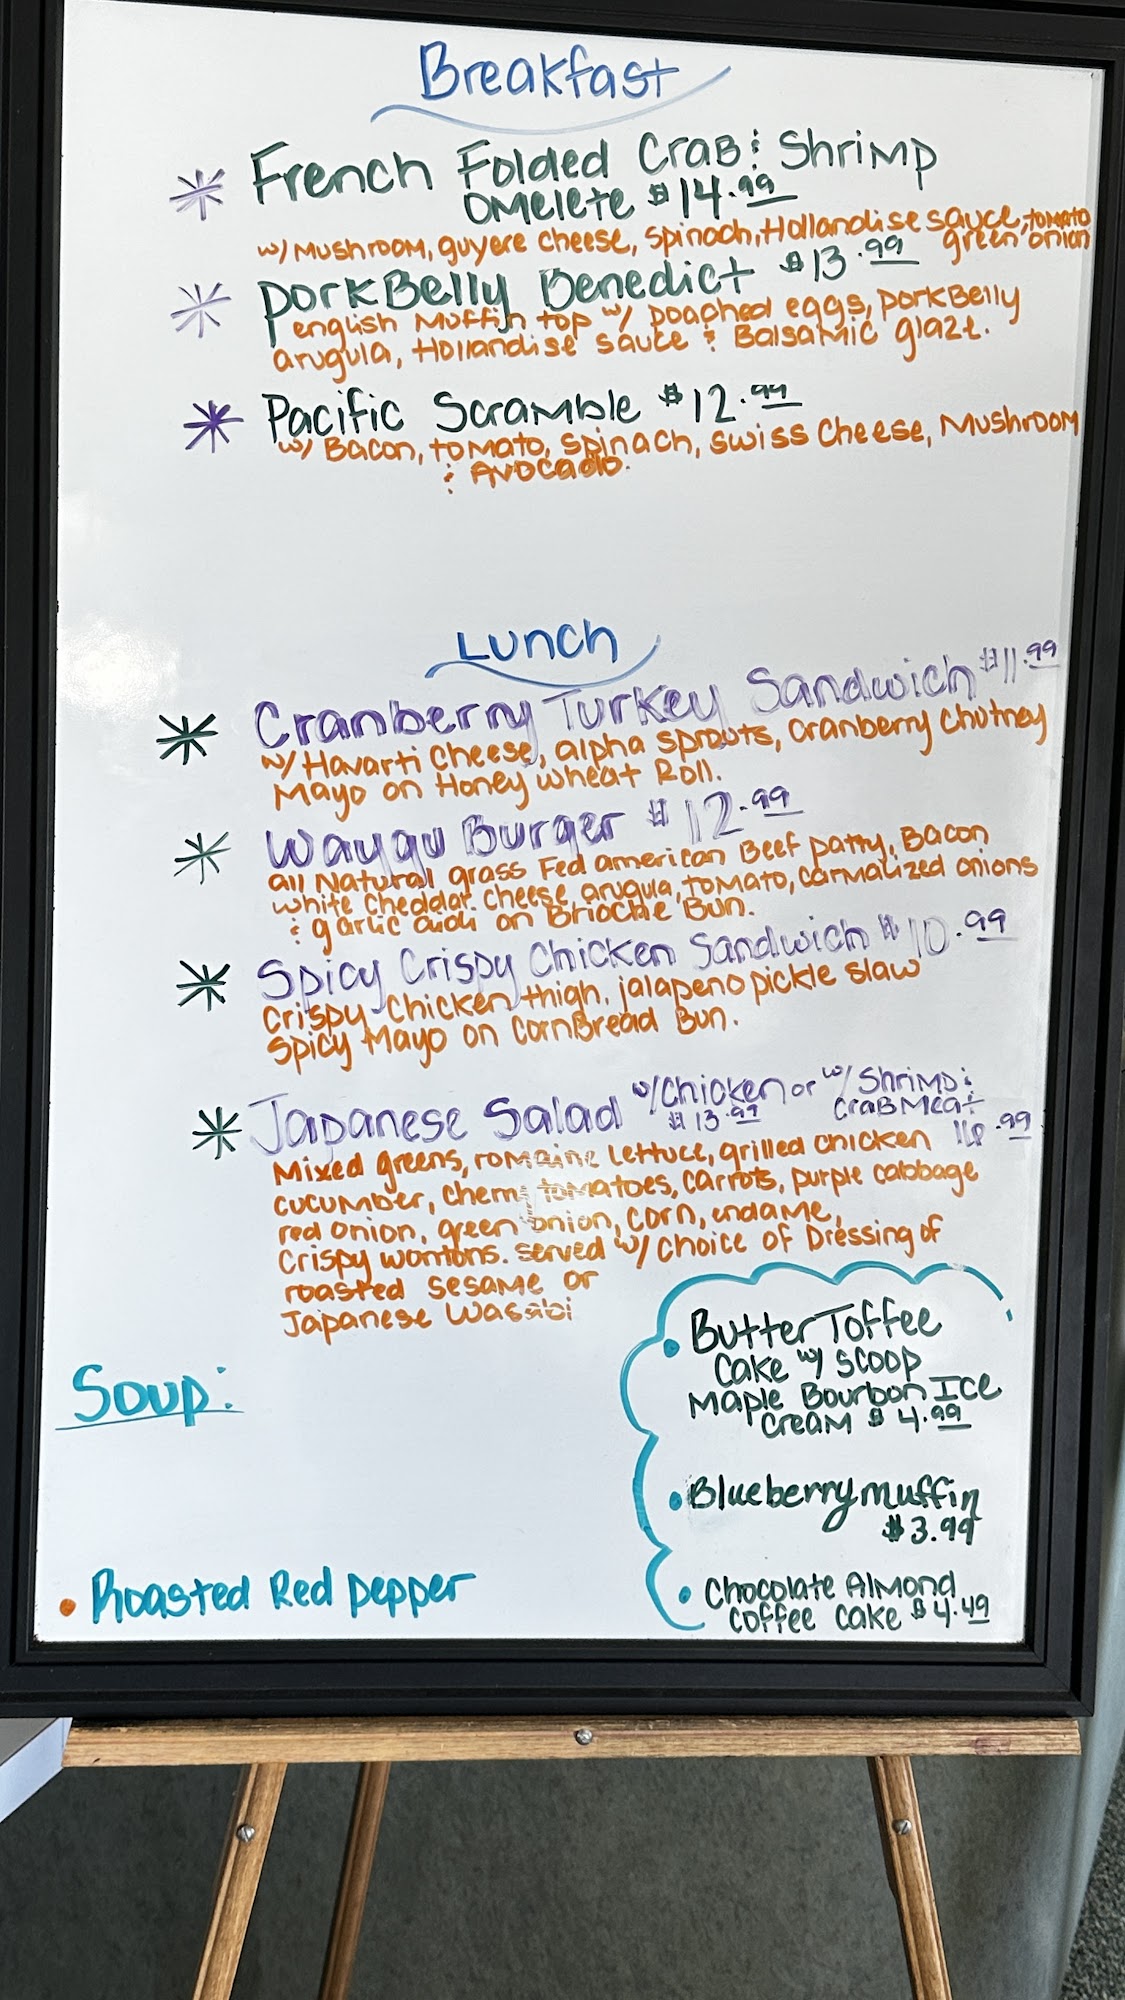 Breakfast
* French Folded Crab & Shrimp
Omelete $14.99
w/ Mushroom, guyere cheese, spinach, Hollandise sauce, tomato
green onion
* porkBelly Benedict $13.99
english Muffin top w/ poached eggs, porkBelly
arugula, Hollandise sauce & Balsamic glaze.
* Pacific Scramble $12.99
w/ Bacon, tomato, spinach, swiss cheese, Mushroom
& Avocado.
Lunch
* Cranberry Turkey Sandwich $11.99
w/ Havarti cheese, alpha sprouts, cranberry chutney
Mayo on Honey wheat Roll.
* Waygu Burger $12.99
all Natural grass Fed american Beef patty, Bacon
white cheddar cheese, arugula, tomato, carmalized onions
& garlic aioli on Brioche Bun.
* Spicy Crispy Chicken Sandwich $10.99
Crispy Chicken thigh, jalapeno pickle slaw
Spicy Mayo on CornBread Bun.
* Japanese Salad w/ Chicken or w/ Shrimp &
$13.99 CraB Meat
.99
Mixed greens, romaine lettuce, grilled chicken
cucumber, cherry tomatoes, carrots, purple cabbage
red onion, green onion, corn, endame,
Crispy wontons. served w/ choice of Dressing of
roasted sesame or
Japanese Wasabi
• Butter Toffee
Cake w/ scoop
Maple Bourbon Ice
cream $4.99
Soup:
• Blueberry muffin
$3.99
• Chocolate Almond
coffee cake $4.49
• Roasted Red pepper